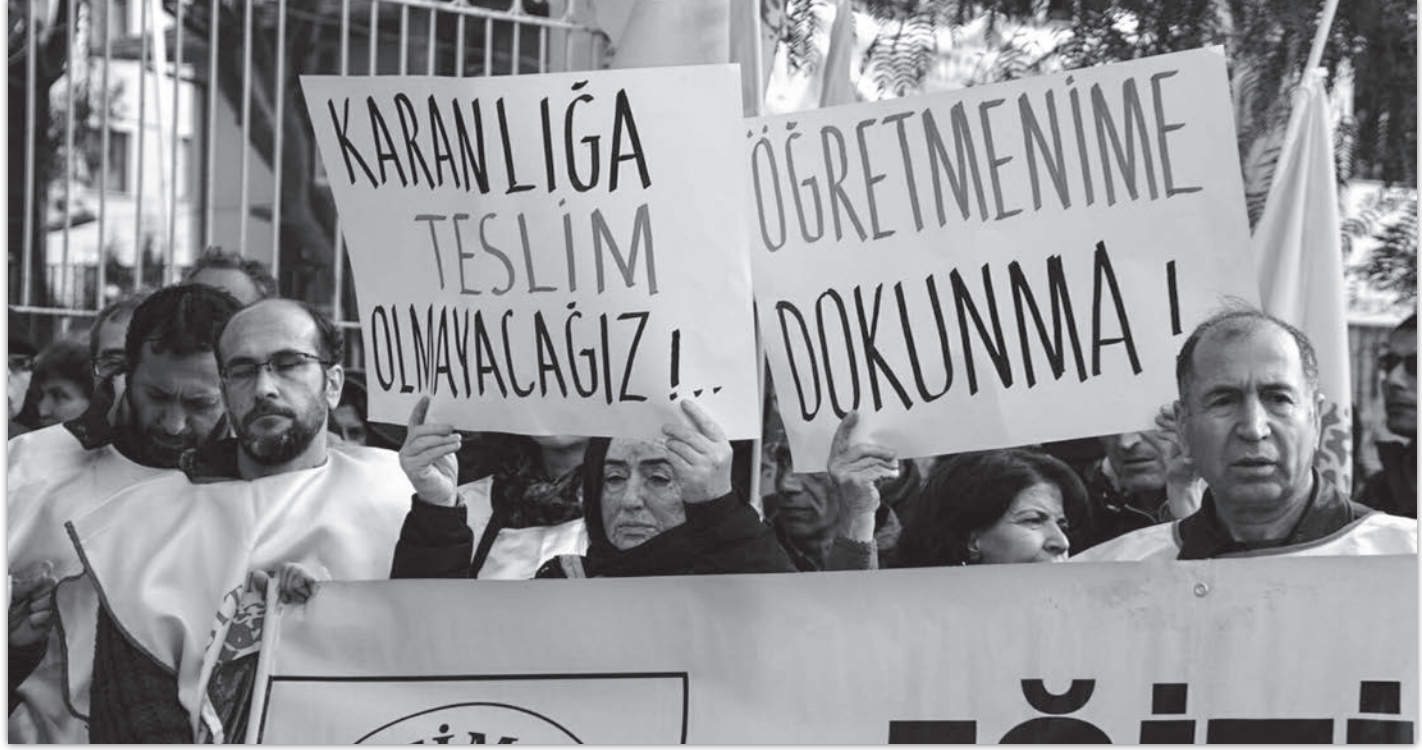 KARANLIĞA
TESLİM
OLMAYACAĞIZ !..
ÖĞRETMENİME
DOKUNMA !